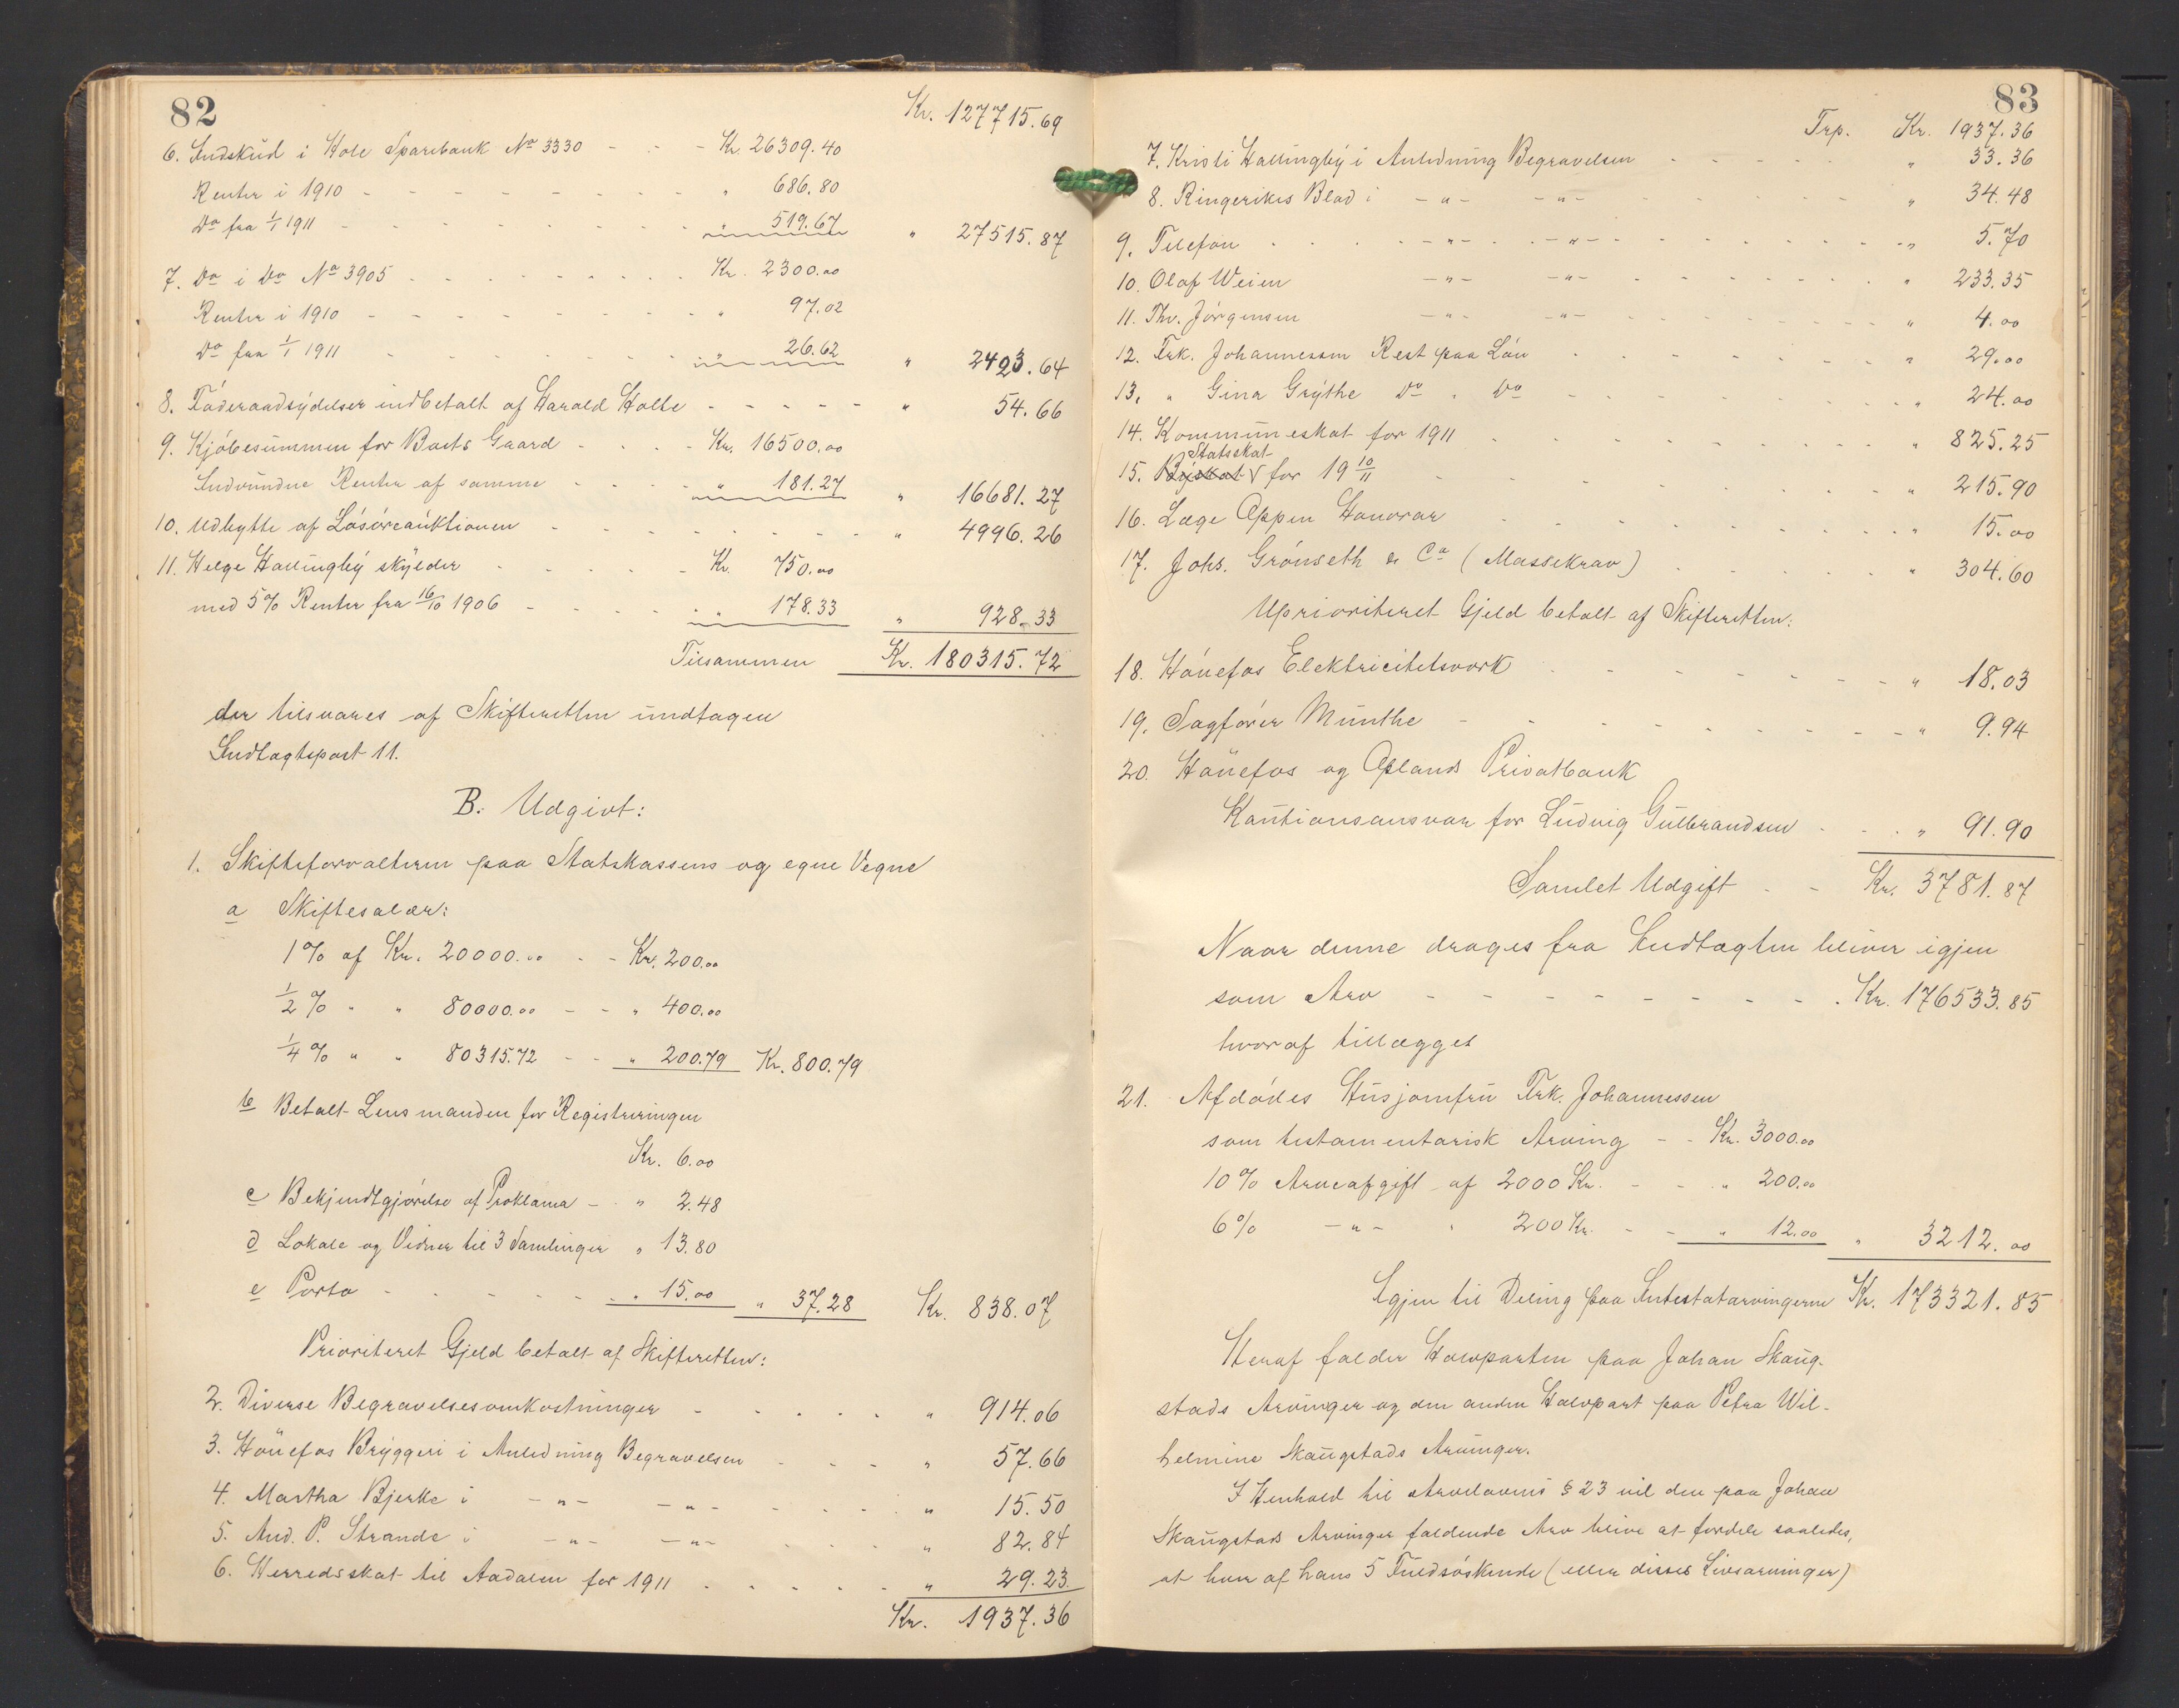 82
Kr. 127715.69
6. Indskud i Hole Sparebank No 3330 - - - Kr. 26309.40
Renter i 1910 - - - - - - - - - " 686.80
Do fra 1/1 1911 - - - - - - - - - " 519.67 " 27515.87
7. Do i Do No 3905 - - - - - - - Kr. 2300.00
Renter i 1910 - - - - - - - - - " 97.02
Do fra 1/1 1911 - - - - - - - - " 26.62 " 2423.64
8. Föderaadsydelser indbetalt af Harald Holte - - - - - " 54.66
9. Kjöbesummen for Boets Gaard - - - - Kr. 16500.00
Indvundne Renter af samme - - - - " 181.27 " 16681.27
10. Udbytte af Lösöreauktionen - - - - - - - - " 4996.26
11. Helge Hallingby skylder - - - - - Kr. 750.00
med 5% Renter fra 16/10 1906 - - - - - " 178.33 " 928.33
Tilsammen Kr. 180315.72
der tilsvares af Skifteretten undtagen
Indtægtspost 11.
B. Udgivt:
1. Skifteforvalteren paa Statskassens og egne Vegne
a Skiftesalær:
1% af Kr. 20000.00 - - Kr. 200.00
1/2% " " 80000.00 - - " 400.00
1/4% " " 80315.72 - - " 200.79 Kr. 800.79
b Betalt Lensmanden for Registreringen
Kr. 6.00
c Bekjendtgjörelse af Proklama - - " 2.48
d Lokale og Vidner til 3 Samlinger " 13.80
e Porto - - - - - - " 15.00 " 37.28 Kr. 838.07
Prioriteret Gjeld betalt af Skifteretten:
2. Diverse Begravelsesomkostninger - - - - - " 914.06
3. Hönefos Bryggeri i Anledning Begravelsen - - - " 57.66
4. Martha Bjerke i -"- -"- - - - - " 15.50
5. And. P. Strande i -"- -"- - - - " 82.84
6. Herredsskat til Aadalen for 1911 - - - - - " 29.23
Kr. 1937.36
83
Trp. Kr. 1937.36
7. Kristi Hallingby i Anledning Begravelsen - - - - - " 33.36
8. Ringerikes Blad i -"- -"- - - - - - " 34.48
9. Telefon - - - - -"- - - -"- - - - - - - - " 5.70
10. Olaf Weien -"- -"- - - - - - - - " 233.35
11. Thv. Jörgensen -"- -"- - - - - - - - " 4.00
12. Frk. Johannessen Rest paa Lön - - - - - - - - " 29.00
13. " Gina Grythe Do " Do - - - - - - - - " 24.00
14. Kommuneskat for 1911 - - - - - - - - - " 825.25
Statsskat
15. Byskat V for 19 10/11 - - - - - - - - - " 215.90
16. Læge Oppen Honorar - - - - - - - - - " 15.00
17. Johs. Grönseth & Co (Massekrav) - - - - - " 304.60
Uprioriteret Gjeld betalt af Skifteretten:
18. Hönefos Elektricitetsverk - - - - - - - " 18.03
19. Sagförer Munthe - - - - - - - - - " 9.94
20. Hönefos og Oplands Privatbank
Kautionsansvar for Ludvig Gulbrandsen - - - " 91.90
Samlet Udgift - - Kr. 3781.87
Naar denne drages fra Indtægten bliver igjen
som Arv - - - - - - - - - Kr. 176533.85
hvoraf tillægges
21. Afdödes Husjomfru Frk. Johannessen
som testamentarisk Arving - - Kr. 3000.00
10% Arveafgift af 2000 Kr. - - - " 200.00
6% -"- " 200 Kr. - - " 12.00 " 3212.00
Igjen til Deling paa Intestatarvingerne Kr. 173321.85
Heraf falder Halvparten paa Johan Skaug-
stads Arvinger og den anden Halvpart paa Petra Wil-
helmine Skaugstads Arvinger.
I Henhold til Arvelovens § 23 vil den paa Johan
Skaugstads Arvinger faldende Arv blive at fordele saaledes,
at hver af hans 5 Fuldsöskende (eller disses Livsarvinger)